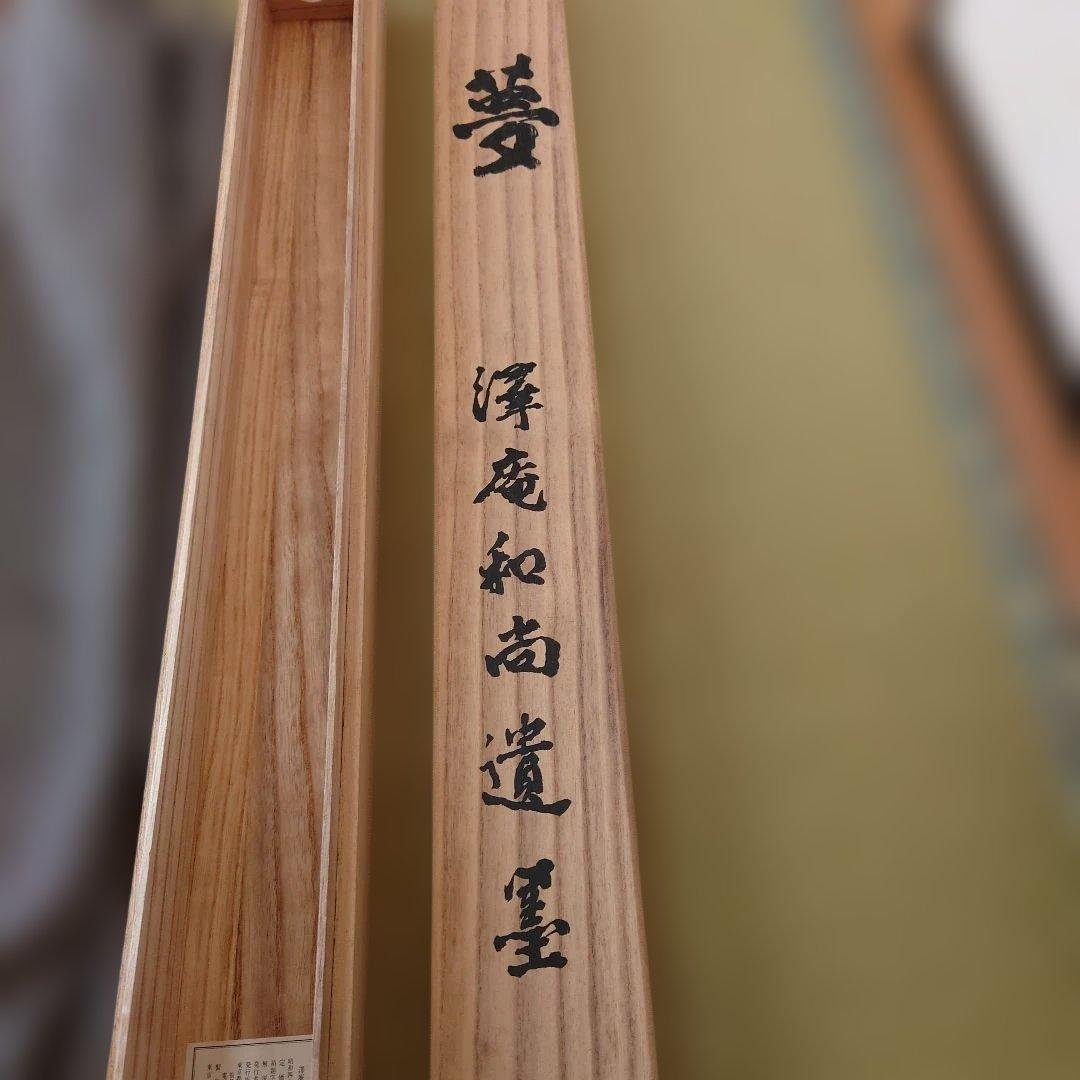 夢
澤庵和尚遺墨